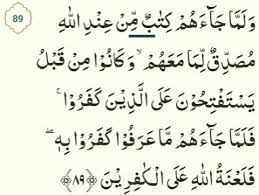 89
وَلَمَّا جَآءَهُمْ كِتٰبٌ مِّنْ عِنْدِ اللّٰهِ
مُصَدِّقٌ لِّمَا مَعَهُمْ ۙ وَكَانُوْا مِنْ قَبْلُ
يَسْتَفْتِحُوْنَ عَلَى الَّذِيْنَ كَفَرُوْا ۚ
فَلَمَّا جَآءَهُمْ مَّا عَرَفُوْا كَفَرُوْا بِهٖ ۖ
فَلَعْنَةُ اللّٰهِ عَلَى الْكٰفِرِيْنَ ﴿۸۹﴾